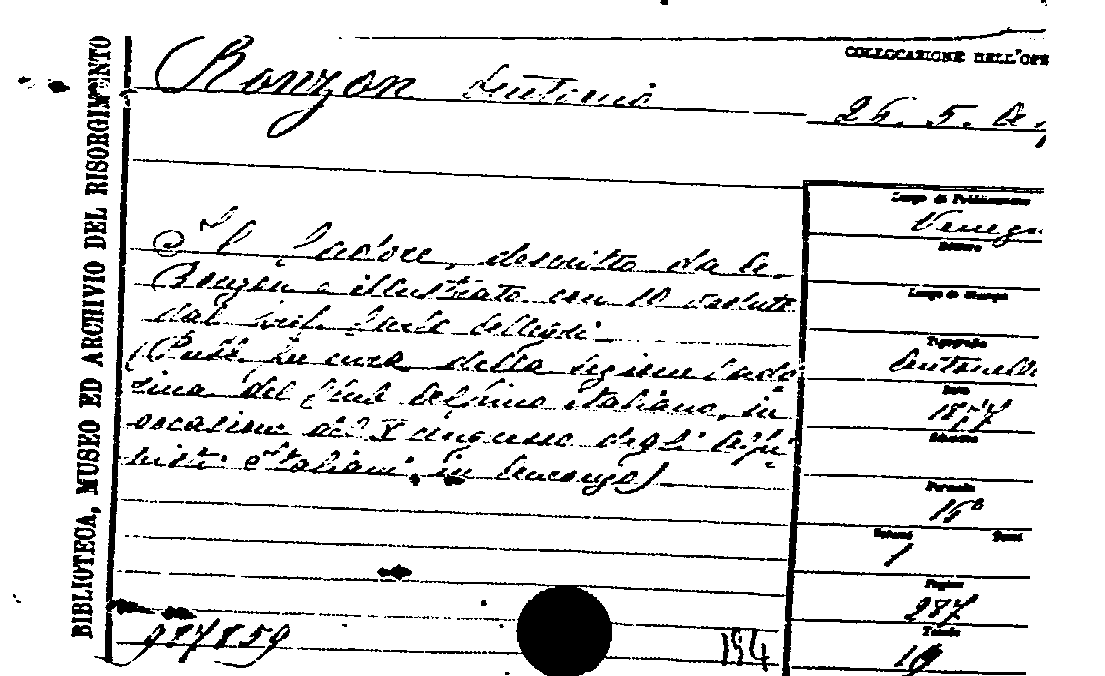 BIBLIOTECA, MUSEO ED ARCHIVIO DEL RISORGIMENTO
Ronzon Antonio
COLLOCAZIONE DELL'OPE
26. 5. A.
Il Cadore, descritto da A.
Ronzon e illustrato con 10 vedute
dal prof.
(Pubb. per cura della sezione Cado
rina del Club Alpino italiano, in
occasione del X congresso degli Alpi-
nisti Italiani, in Auronzo)
Luogo di Pubblicazione
Venez
Editore
Luogo di Stampa
Tipografia
Antonelli
Data
1877
Edizione
Formato
16°
Volumi
1
Tomi
Pagine
287
Tavole
10
987859
194